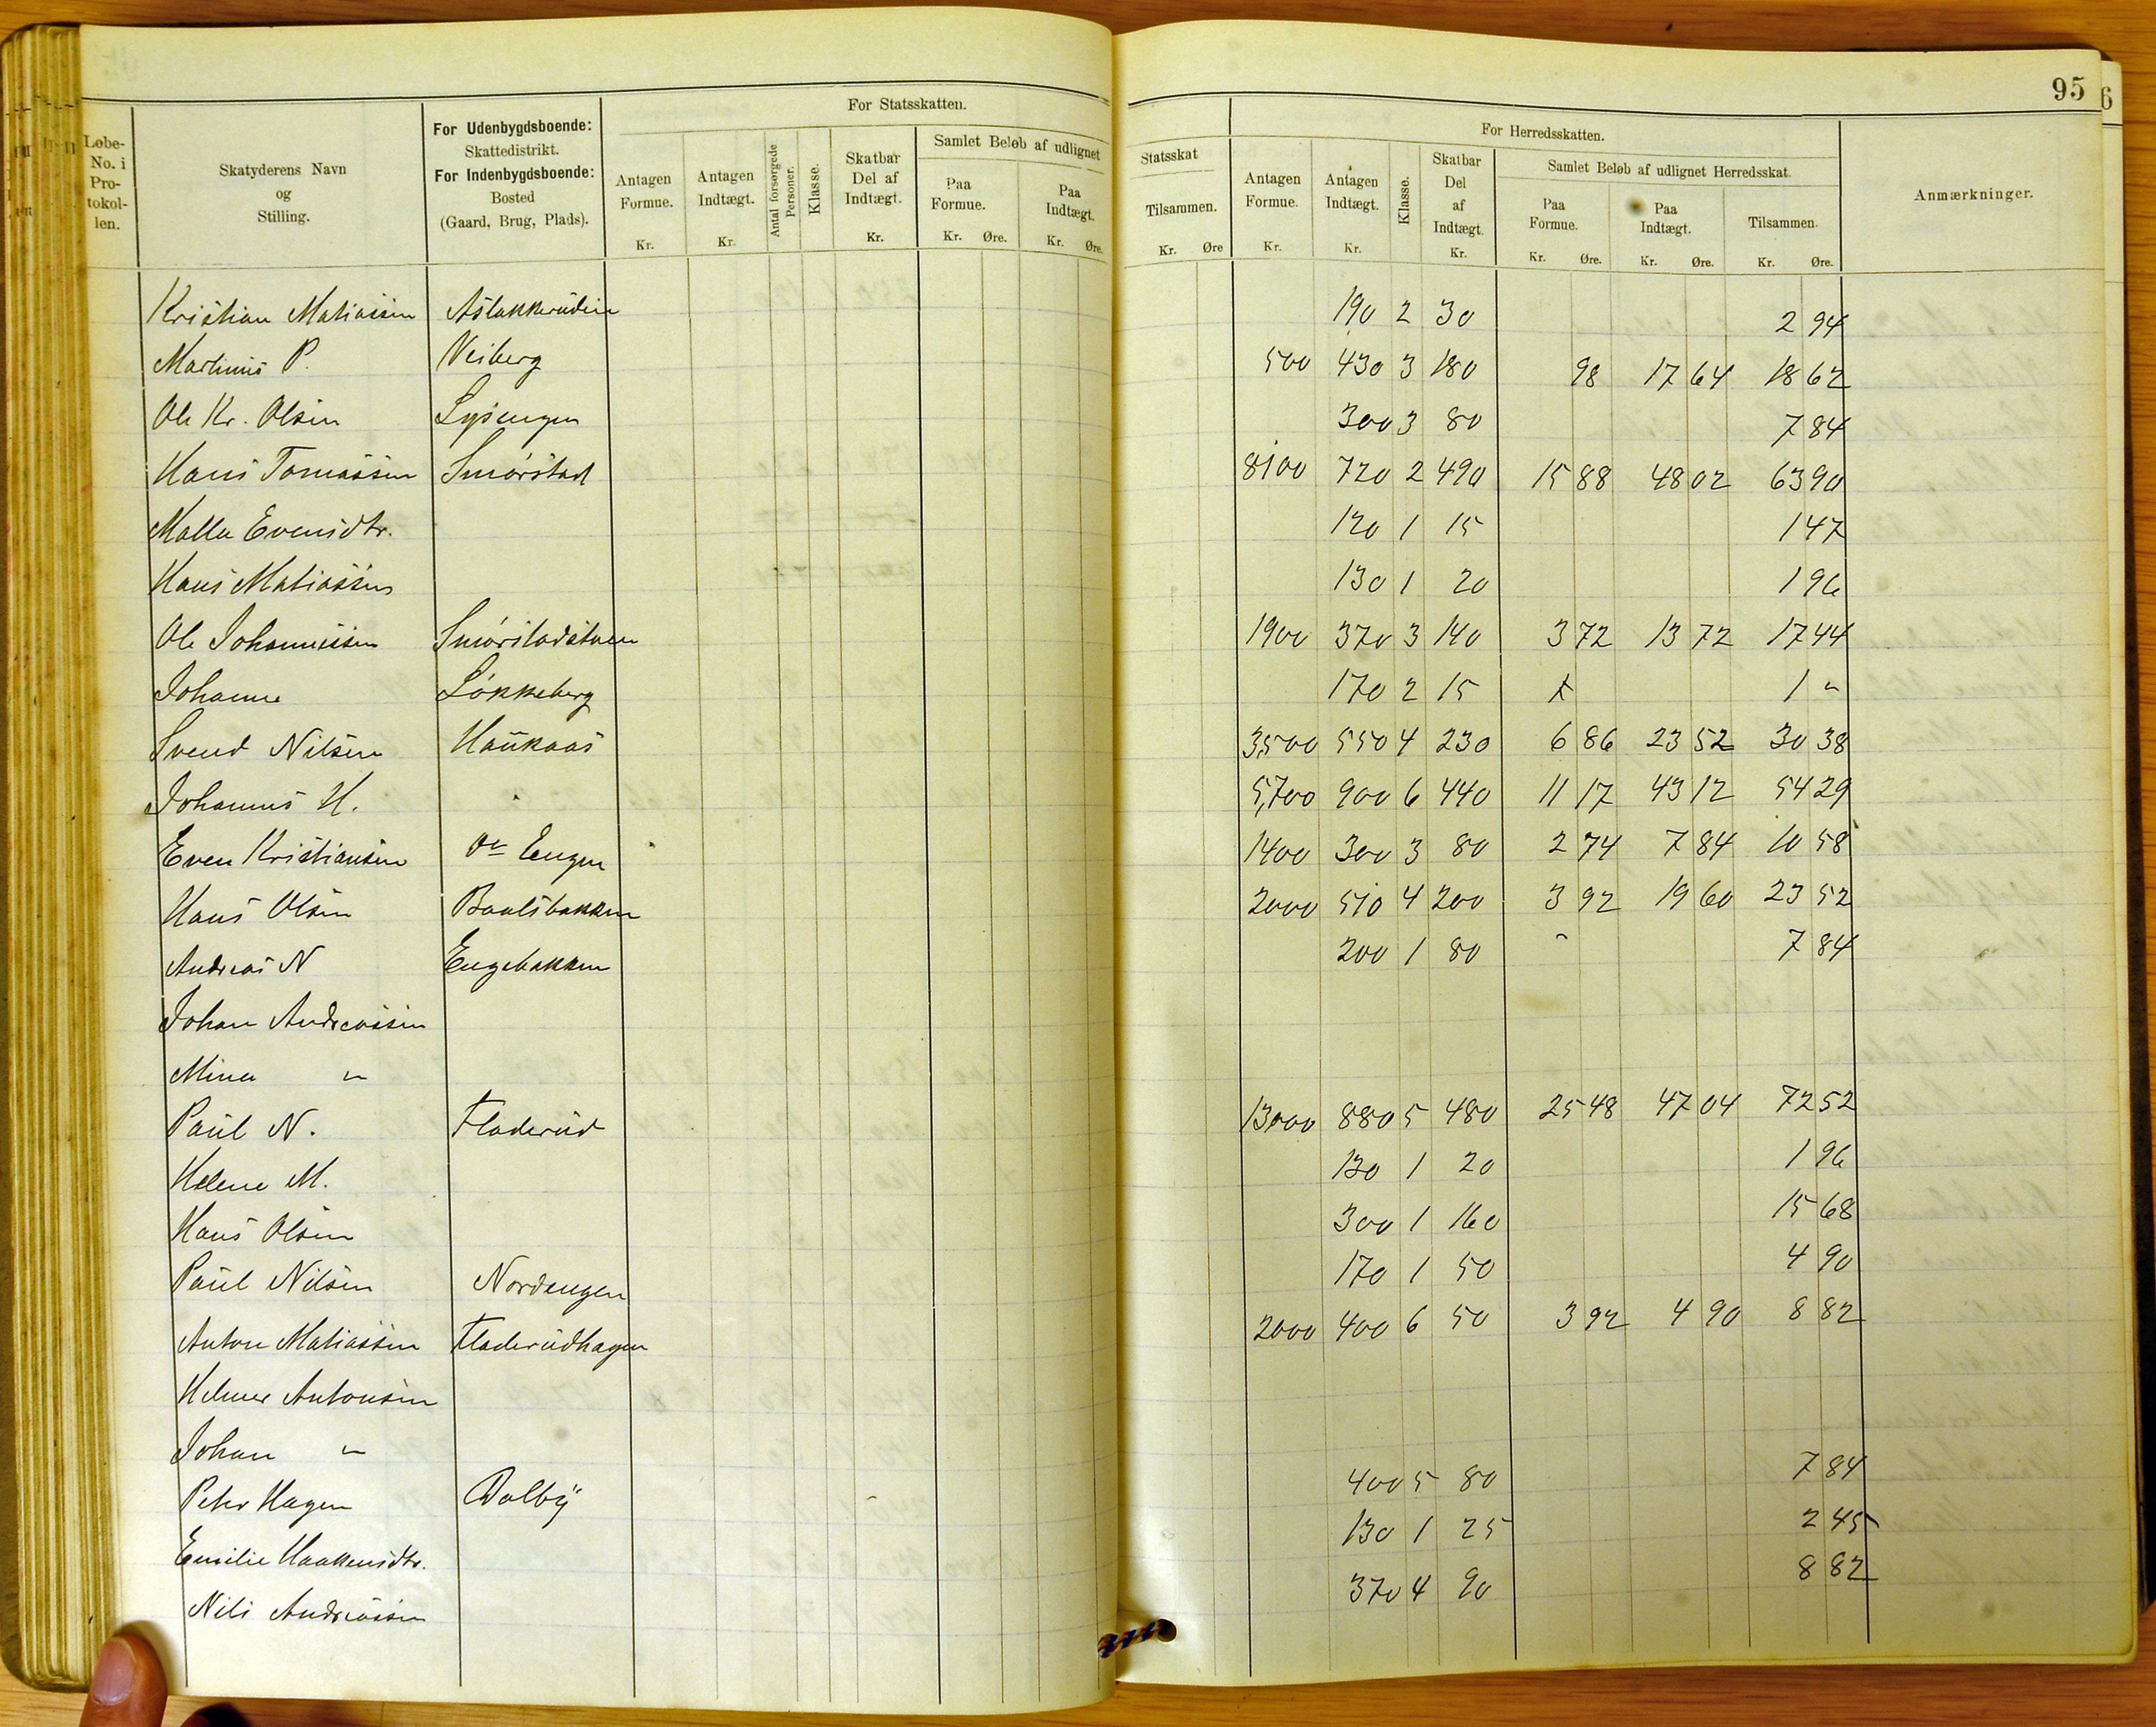 95
6
Løbe-No. i Pro-tokol-len.
Skatyderens Navn og Stilling.
For Udenbygdsboende: Skattedistrikt. For Indenbygdsboende: Bosted (Gaard, Brug, Plads).
For Statsskatten.
Antagen Formue. Kr.
Antagen Indtægt. Kr.
Antal forsørgede Personer.
Klasse.
Skatbar Del af Indtægt. Kr.
Samlet Beløb af udlignet
Paa Formue. Kr. Øre.
Paa Indtægt. Kr. Øre.
Statsskat
Tilsammen. Kr. Øre
For Herredsskatten.
Antagen Formue. Kr.
Antagen Indtægt. Kr.
Klasse.
Skatbar Del af Indtægt. Kr.
Samlet Beløb af udlignet Herredsskat.
Paa Formue. Kr. Øre.
Paa Indtægt. Kr. Øre.
Tilsammen. Kr. Øre.
Anmærkninger.
Kristian Matiassen Aslakkerudeie 190 2 30 2 94
Martinus P. Veiberg 500 430 3 180 98 17 64 18 62
Ole Kr. Olsen Lysengen 300 3 80 7 84
Hans Tomassen Smørstad 8100 720 2 490 15 88 48 02 63 90
Malla Evensdtr. 120 1 15 1 47
Hans Matiassen 130 1 20 1 96
Ole Johannessen Smørstadstuen 1900 370 3 140 3 72 13 72 17 44
Johanne Løkkeberg 170 2 15 1 "
Svend Nilsen Haukaas 3,500 550 4 230 6 86 23 52 30 38
Johannes H. " 5,700 900 6 440 11 17 43 12 54 29
Even Kristiansen Engen 1400 300 3 80 2 74 7 84 10 58
Hans Olsen Baalsbakken 2000 510 4 200 3 92 19 60 23 52
Andreas N Engebakken 200 1 80 7 84
Johan Andreassen
Mina "
Paul N. Fladerud 13000 880 5 480 25 48 47 04 72 52
Helene M. 130 1 20 1 96
Hans Olsen 300 1 160 15 68
Paul Nilsen Nordengen 170 1 50 4 90
Anton Matiassen Fladerudhagen 2000 400 6 50 3 92 4 90 8 82
Helmer Antonsen
Johan "
Peter Hagen Dalby 400 5 80 7 84
Emilie Haakensdtr. 130 1 25 2 45
Nils Andreassen 370 4 90 8 82